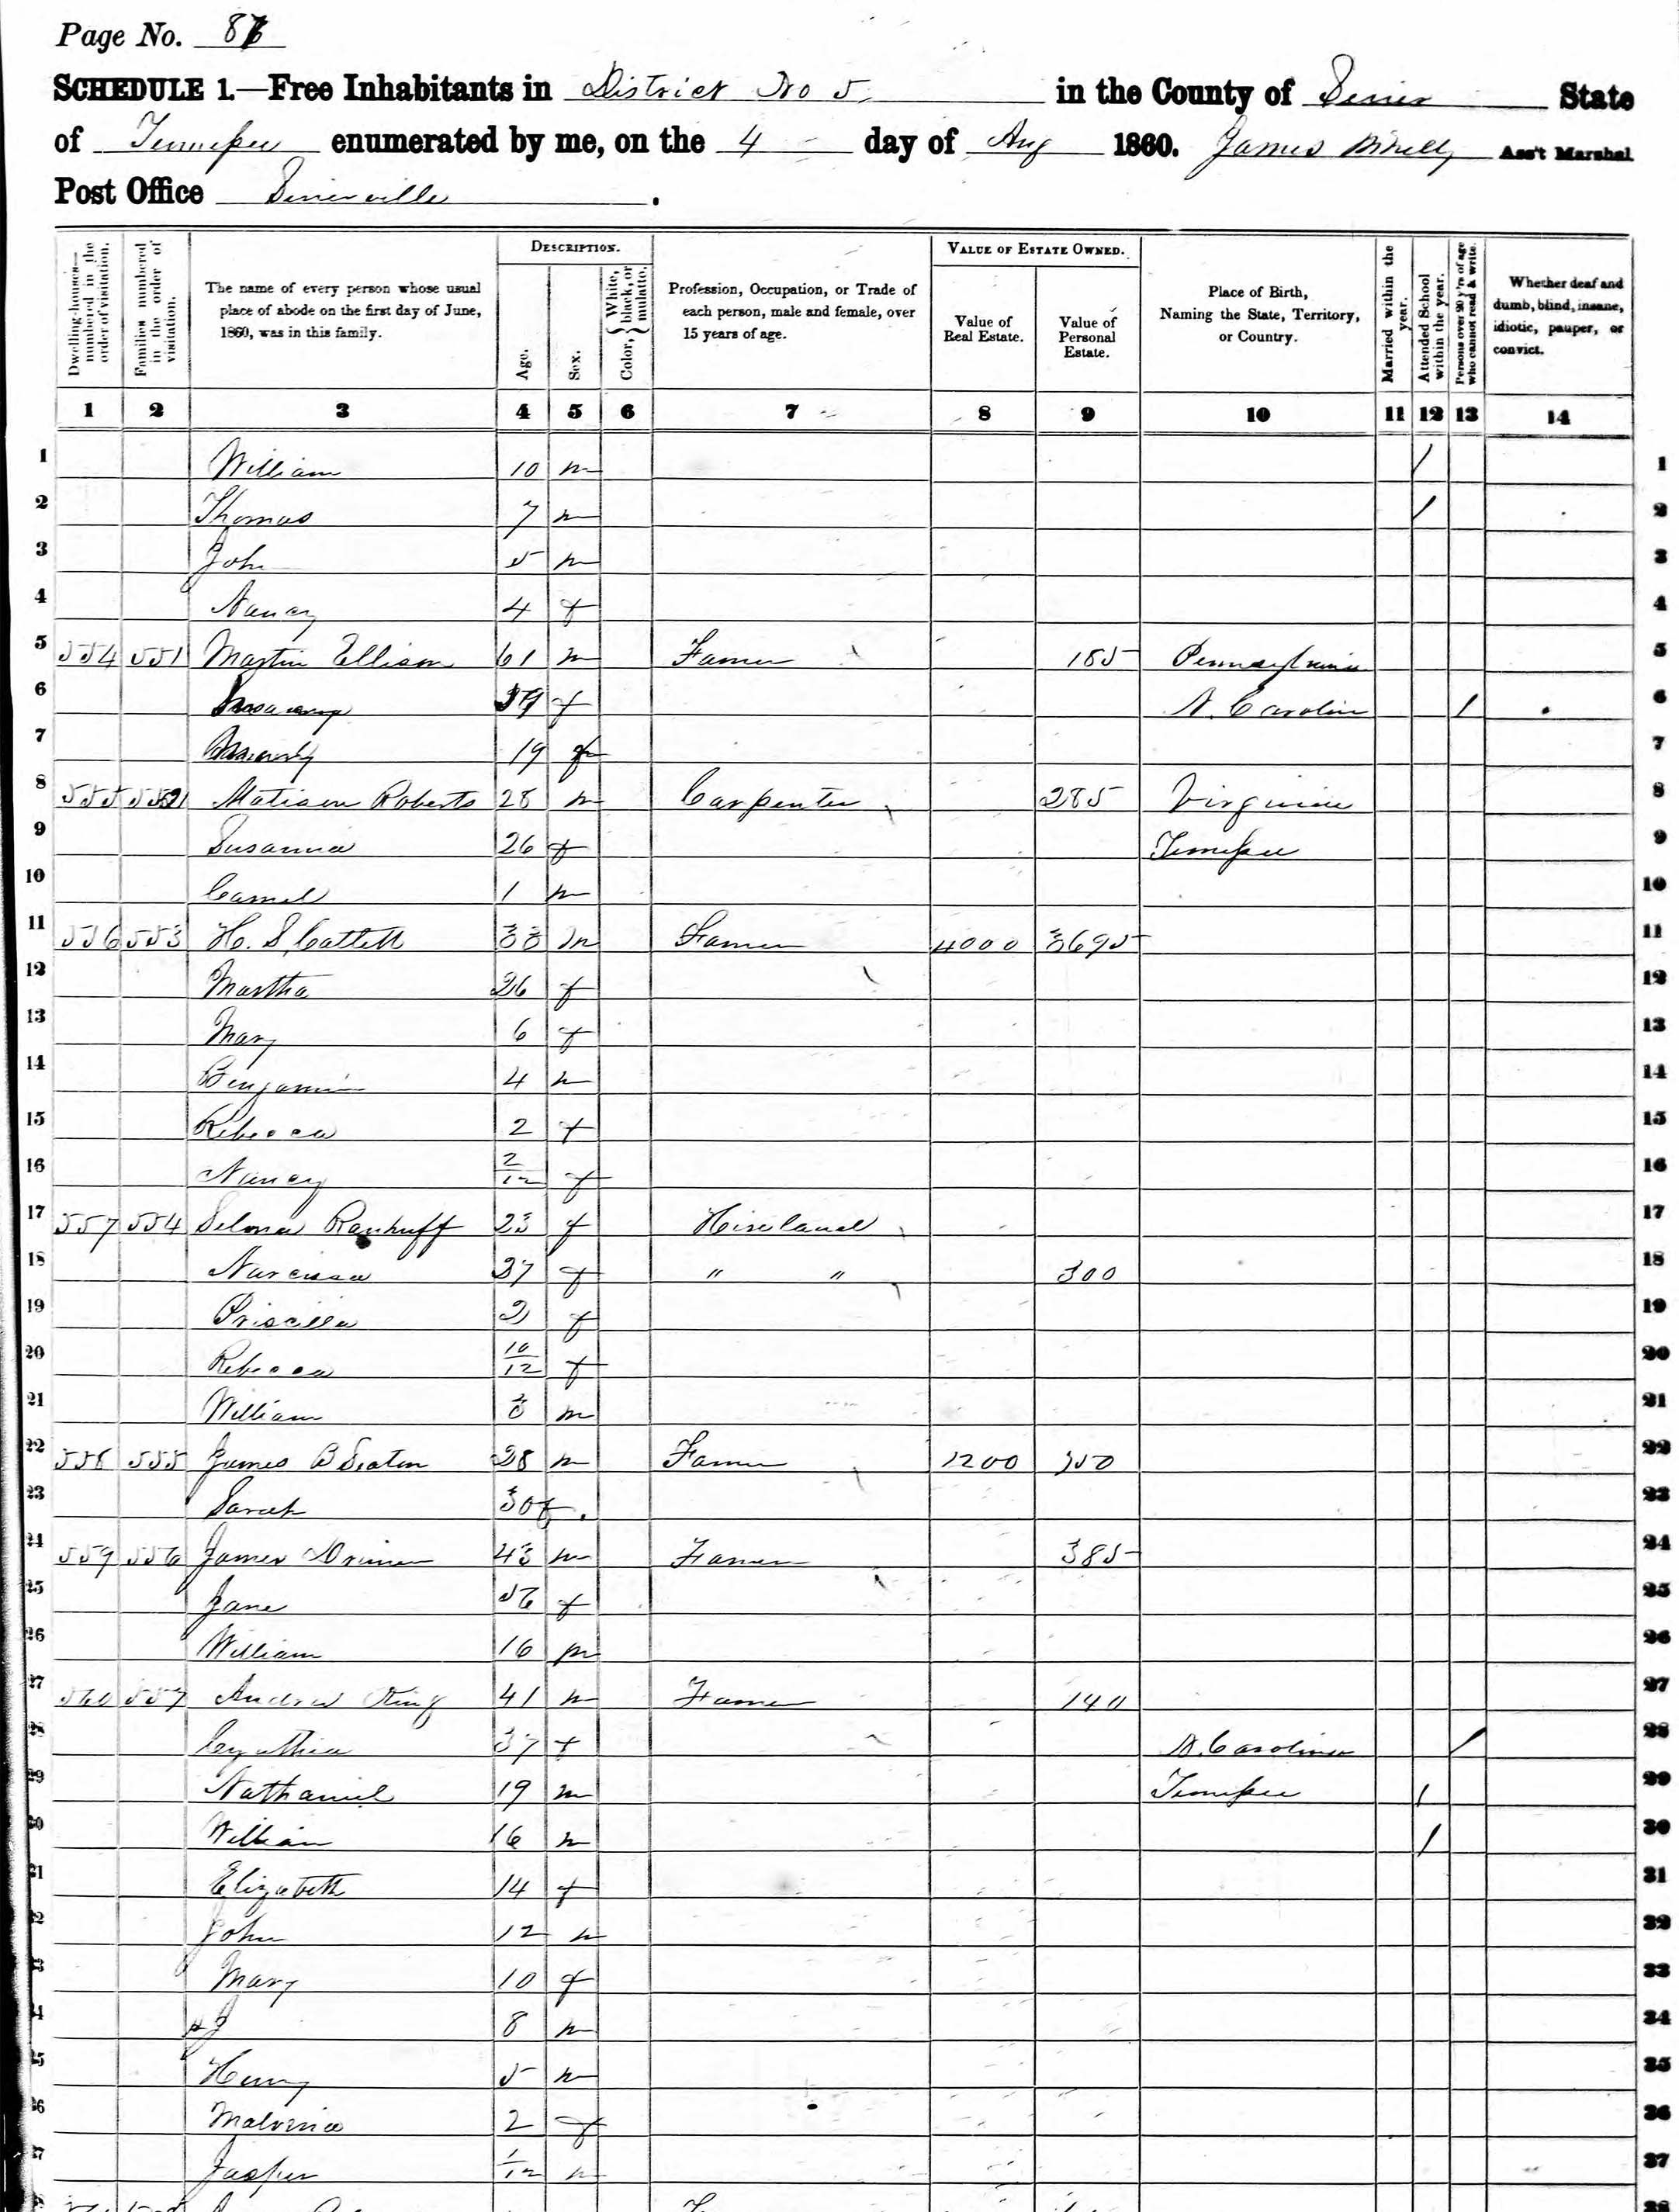 Page No. 87
SCHEDULE 1.—Free Inhabitants in District No 5 in the County of Sevier State
of Tennessee enumerated by me, on the 4 day of Aug 1860. James Ass't Marshal
Post Office Sevierville.
Dwelling-houses—numbered in the order of visitation.
Families numbered in the order of visitation.
The name of every person whose usual place of abode on the first day of June, 1860, was in this family.
DESCRIPTION.
Age.
Sex.
Color, { White, black, or mulatto.
Profession, Occupation, or Trade of each person, male and female, over 15 years of age.
VALUE OF ESTATE OWNED.
Value of Real Estate.
Value of Personal Estate.
Place of Birth, Naming the State, Territory, or Country.
Married within the year.
Attended School within the year.
Persons over 20 y'rs of age who cannot read & write.
Whether deaf and dumb, blind, insane, idiotic, pauper, or convict.
1 2 3 4 5 6 7 8 9 10 11 12 13 14
1 William 10 m / 1
2 Thomas 7 m / 2
3 John 5 m 3
4 Nancy 4 f 4
5 554 551 Martin Ellison 61 m Farmer 185 Pennsylvania 5
6 f N. Carolin / 6
7 19 f 7
8 555 552 Matison Roberts 28 m Carpenter 285 Virginia 8
9 Susanna 26 f Tennessee 9
10 Camel 1 m 10
11 556 553 H. S. Catlett 33 m Farmer 4000 3695 11
12 Martha 26 f 12
13 Mary 6 f 13
14 Benjamin 4 m 14
15 Rebecca 2 f 15
16 Nancy 2/12 f 16
17 557 554 Selona Ranhuff 23 f Hireland 17
18 Narcissa 27 f " " 300 18
19 Priscilla 2 f 19
20 Rebecca 10/12 f 20
21 William 3 m 21
22 558 555 James B Seaton 28 m Farmer 1200 350 22
23 Sarah 30 f 23
24 559 556 James 43 m Farmer 385 24
25 Jane 56 f 25
26 William 16 m 26
27 560 557 Andrew King 41 m Farmer 140 27
28 Cynthia 37 f N. Carolina / 28
29 Nathaniel 19 m Tennessee / 29
30 William 16 m / 30
31 Elizabeth 14 f 31
32 John 12 m 32
33 Mary 10 f 33
34 J 8 m 34
35 Henry 5 m 35
36 Malvina 2 f 36
37 Jasper 1/12 m 37
38